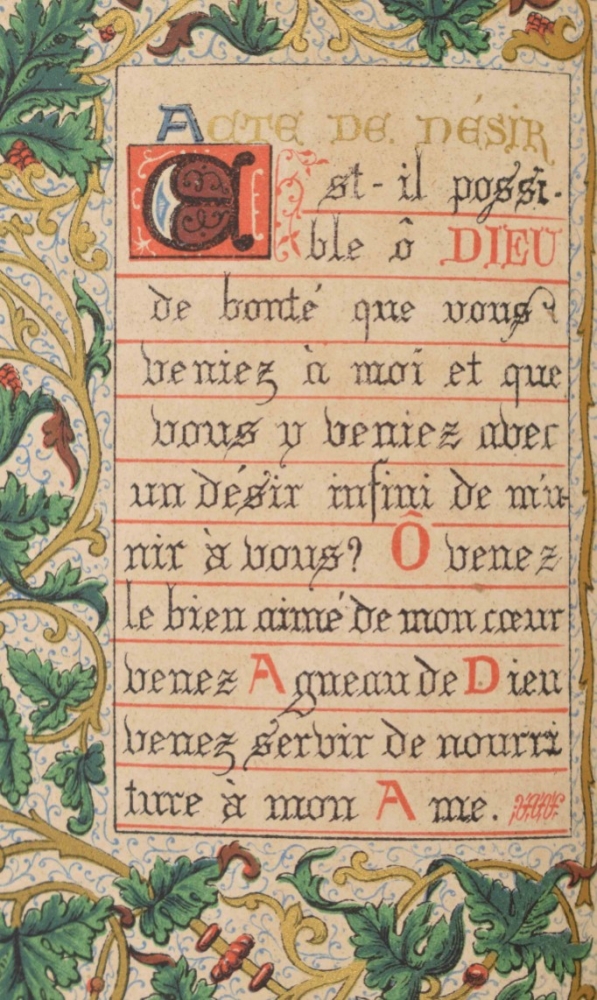 ACTE DE DÉSIR
Est-il possi-
ble ô DIEU
de bonté que vous
veniez à moi et que
vous y veniez avec
un désir infini de m'u-
nir à vous? Ô venez
le bien aimé de mon cœur
venez Agneau de Dieu
venez servir de nourri
ture à mon Ame.